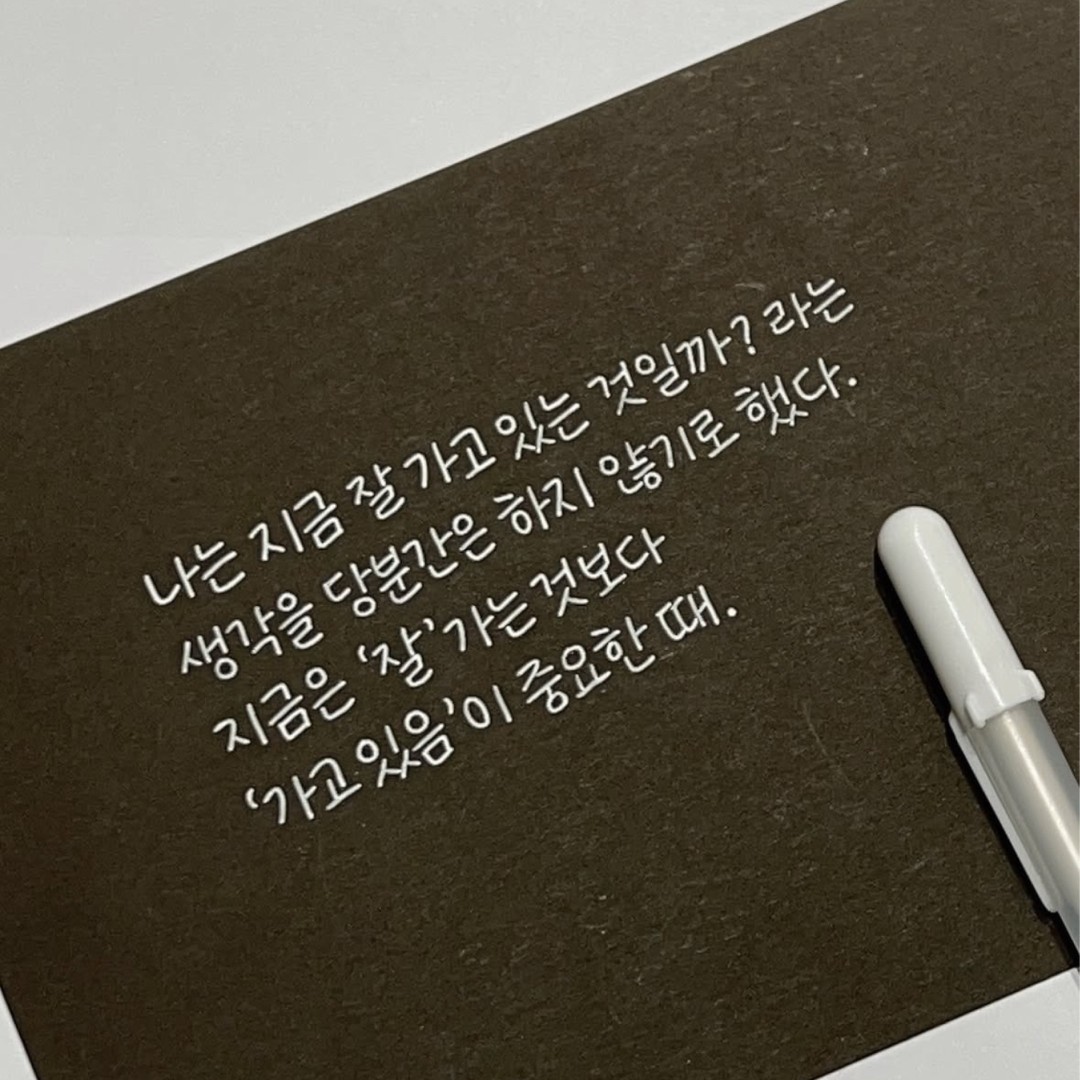 나는 지금 잘 가고 있는 것일까? 라는
생각을 당분간은 하지 않기로 했다.
지금은 ‘잘’ 가는 것보다
‘가고 있음’이 중요한 때.